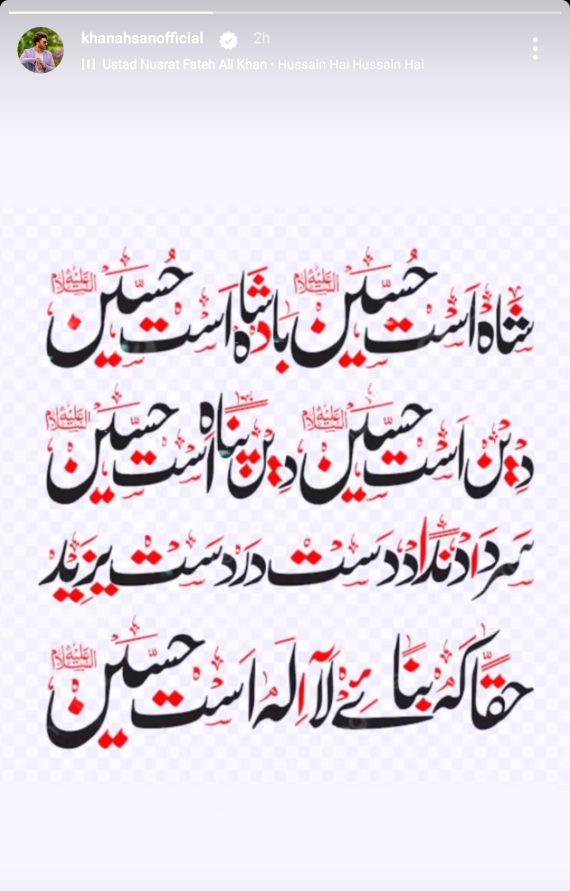 khanahsanofficial 2h
Ustad Nusrat Fateh Ali Khan • Hussain Hai Hussain Hai
شاہ است حُسین علیہ السلام بادشاہ است حُسین علیہ السلام
دین است حُسین علیہ السلام دین پناہ است حُسین علیہ السلام
سر داد نداد دست در دست یزید
حقّا کہ بنائے لآ اِلہ است حُسین علیہ السلام